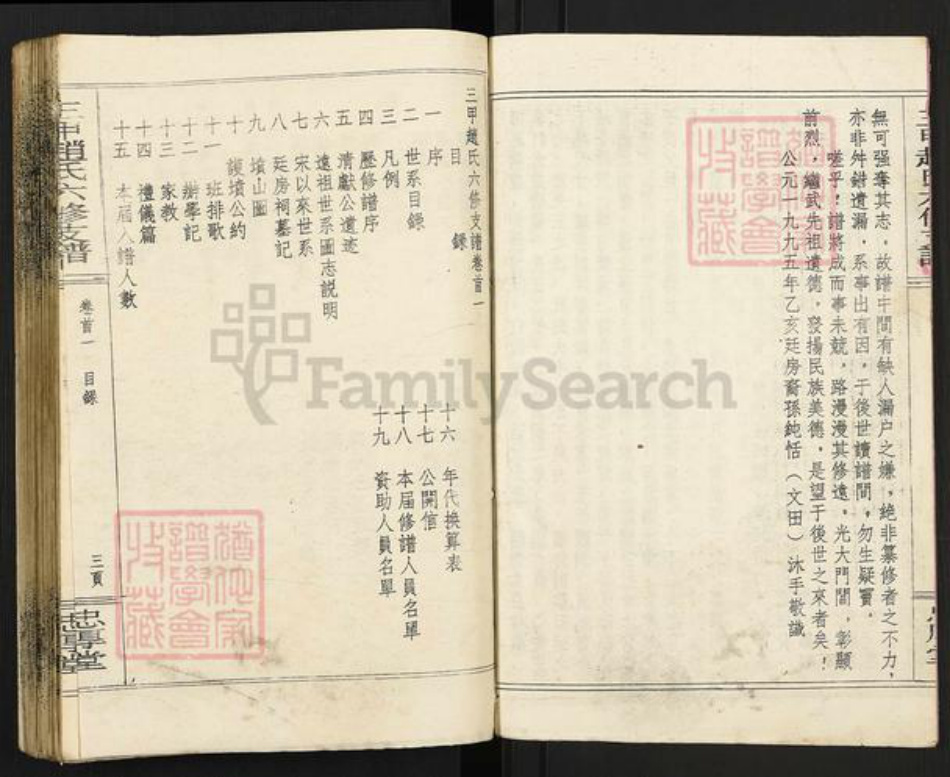 無可强奪其志，故譜中間有缺人漏户之嫌，絶非纂修者之不力，
亦非舛錯遺漏，系事出有因，于後世讀譜間，勿生疑竇。
嗟乎！譜將成而事未競，路漫漫其修遠。光大門閭，彰顯
前烈，繼武先祖遺德，發揚民族美德，是望于後世之來者矣！
公元一九九五年乙亥廷房裔孫純恬（文田）沐手敬識
三甲趙氏六修支譜卷首一
目錄
一 序
二 世系目錄
三 凡例
四 歷修譜序
五 清獻公遺迹
六 遠祖世系圖志説明
七 宋以來世系
八 廷房祠墓記
九 墳山圖
十 護墳公約
十一 班排歌
十二 辦學記
十三 家教
十四 禮儀篇
十五 本届入譜人數
十六 年代换算表
十七 公開信
十八 本届修譜人員名單
十九 資助人員名單
三甲趙氏六修支譜
卷首一 目錄
三頁
忠厚堂
FamilySearch
譜學會
收藏